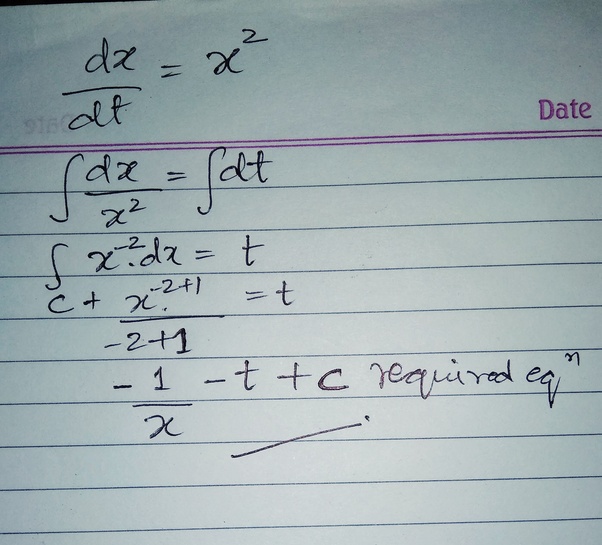 dx/dt = x²
Date
∫ dx/x² = ∫dt
∫ x⁻².dx = t
c + x.⁻²⁺¹/-2+1 = t
- 1/x - t + c required eqⁿ